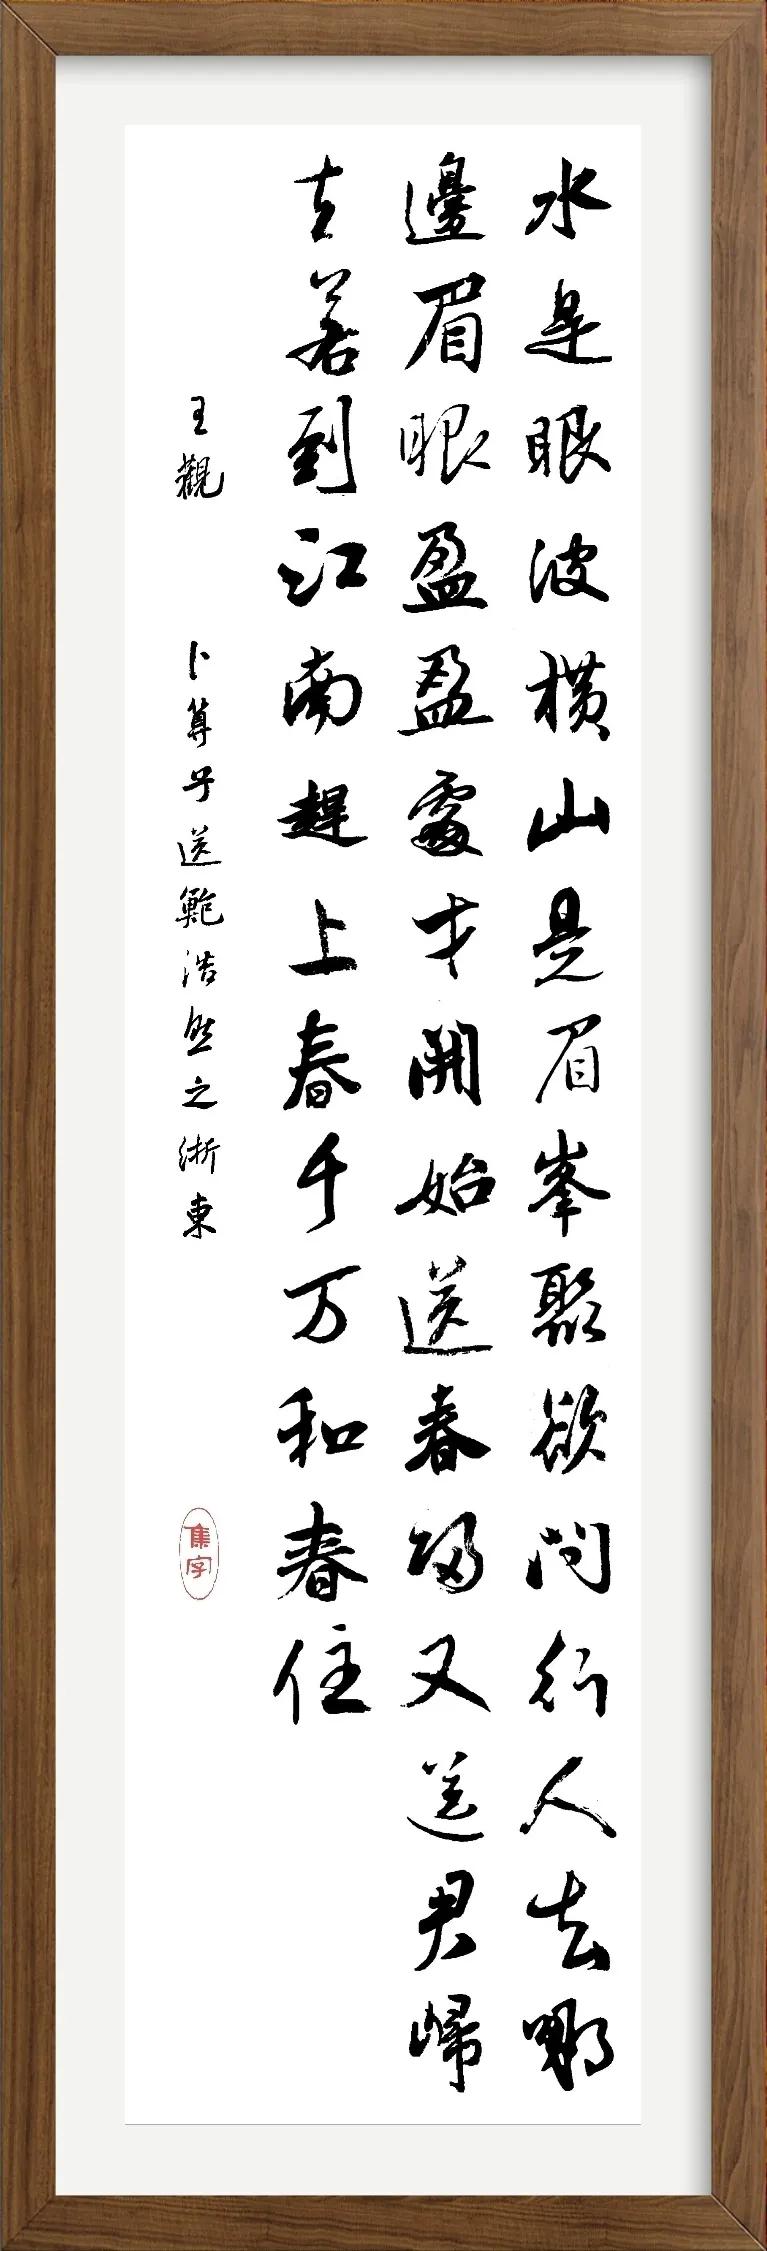 水是眼波横山是眉峯聚欲問行人去哪
邊眉眼盈盈處才開始送春歸又送君歸
去若到江南趕上春千万和春住
王觀 卜算子送鮑浩然之浙東
集字